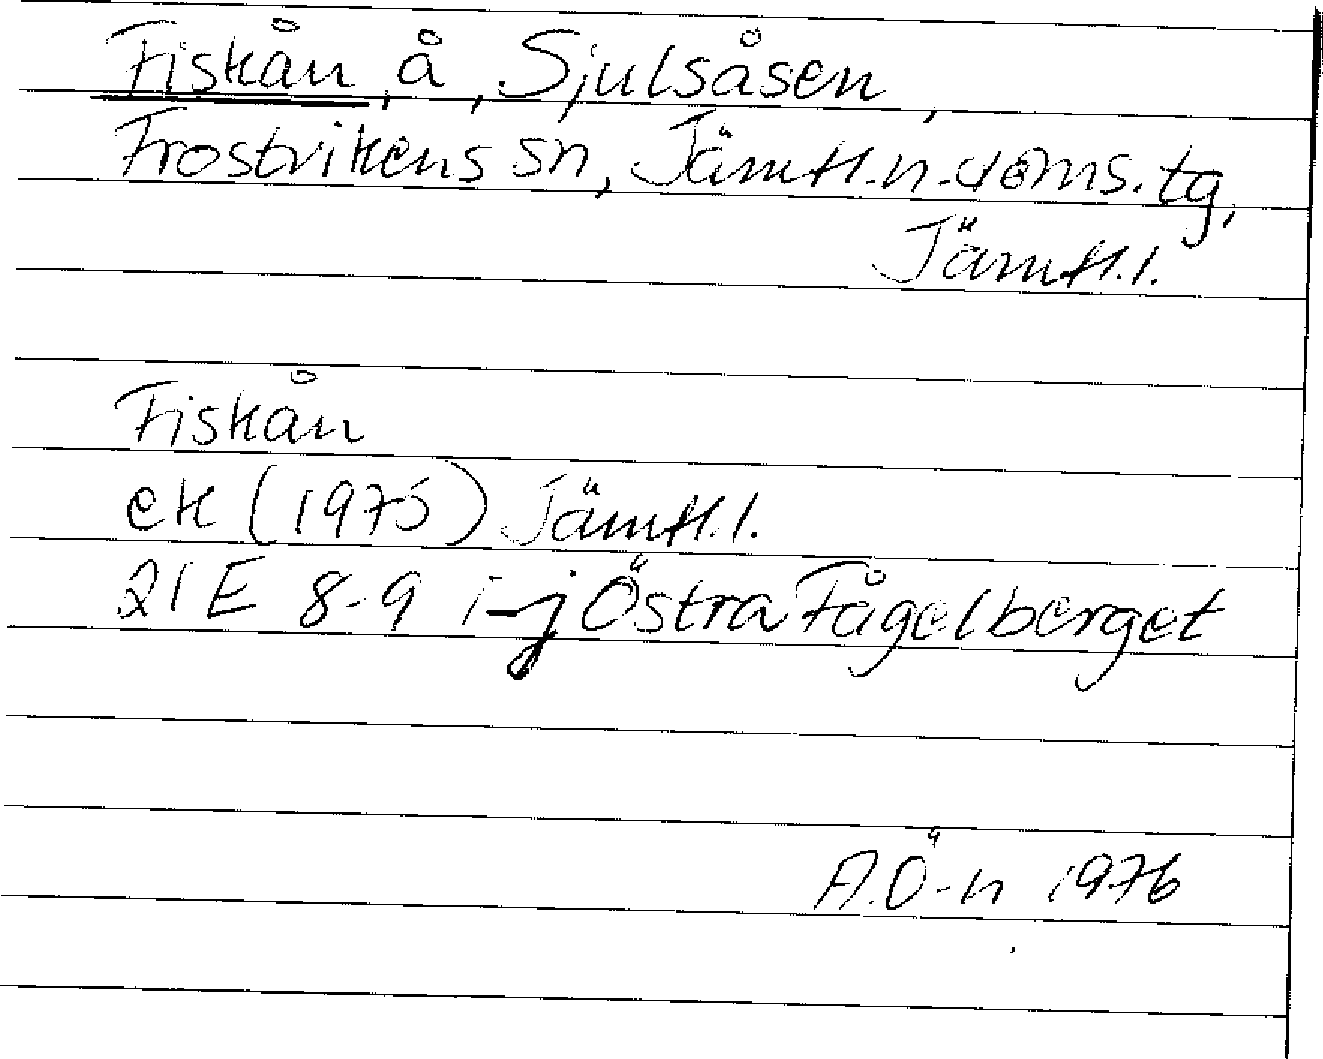 Fiskån, å, Sjulsåsen,
Frostvikens sn, Jämtl.n.doms.tg,
Jämtl.l.
Fiskån
ek (1975) Jämtl.l.
21 E 8-9 i-j Östra Fågelberget
A.Ö-n 1976